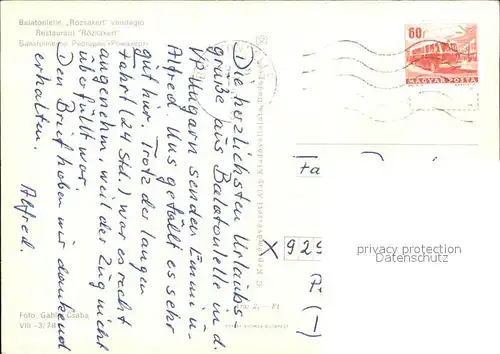 Balatonlelle, „Rózsakert" vendéglő
Restaurant "Rózsakert"
Балатонлелле Ресторан «Рожакерт»
Die herzlichsten Urlaubs-
grüße aus Balatonlelle in d.
VP Ungarn senden Emmi u.
Alfred. Uns gefällt es sehr
gut hier. Trotz der langen
Fahrt (24 Std.) war es recht
angenehm, weil der Zug nicht
überfüllt war.
Den Brief haben wir dankend
erhalten.
Alfred.
Foto, Gabler Csaba
VIII -3/78
Ára: 2,— Ft
60f
MAGYAR POSTA
X 929
privacy protection
Datenschutz